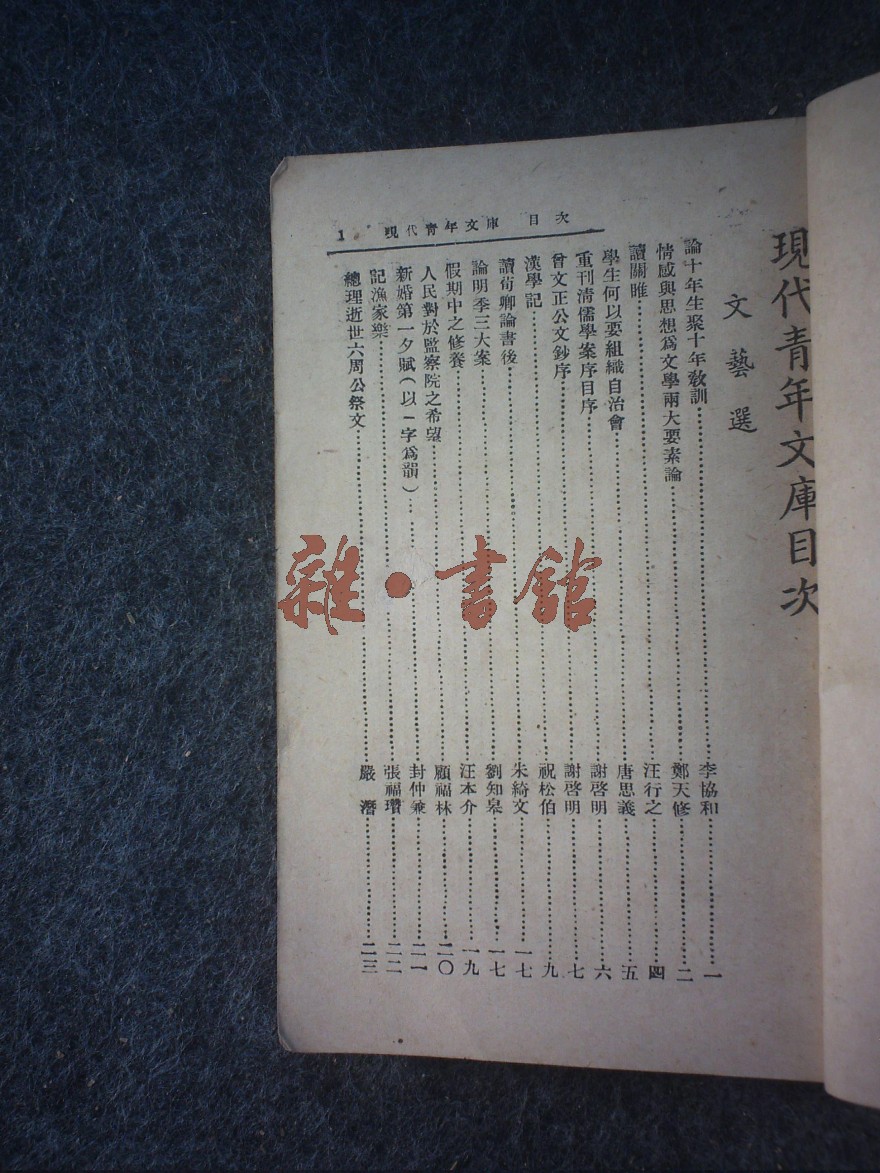 現代青年文庫目次
文藝選
論十年生聚十年教訓 李協和 一
情感與思想爲文學兩大要素論 鄭天修 二
讀關雎 汪行之 四
學生何以要組織自治會 唐思義 五
重刊清儒學案序目序 謝啓明 六
曾文正公文鈔序 謝啓明 七
漢學記 祝松伯 九
讀荀卿論書後 朱綺文 一七
論明季三大案 劉知皋 一七
假期中之修養 汪本介 一九
人民對於監察院之希望 顧福林 二〇
新婚第一夕賦(以一字爲韻) 封仲兼 二一
記漁家樂 張福瓚 二二
總理逝世六周公祭文 嚴潛 二三
現代青年文庫 目次 1
雜·書館